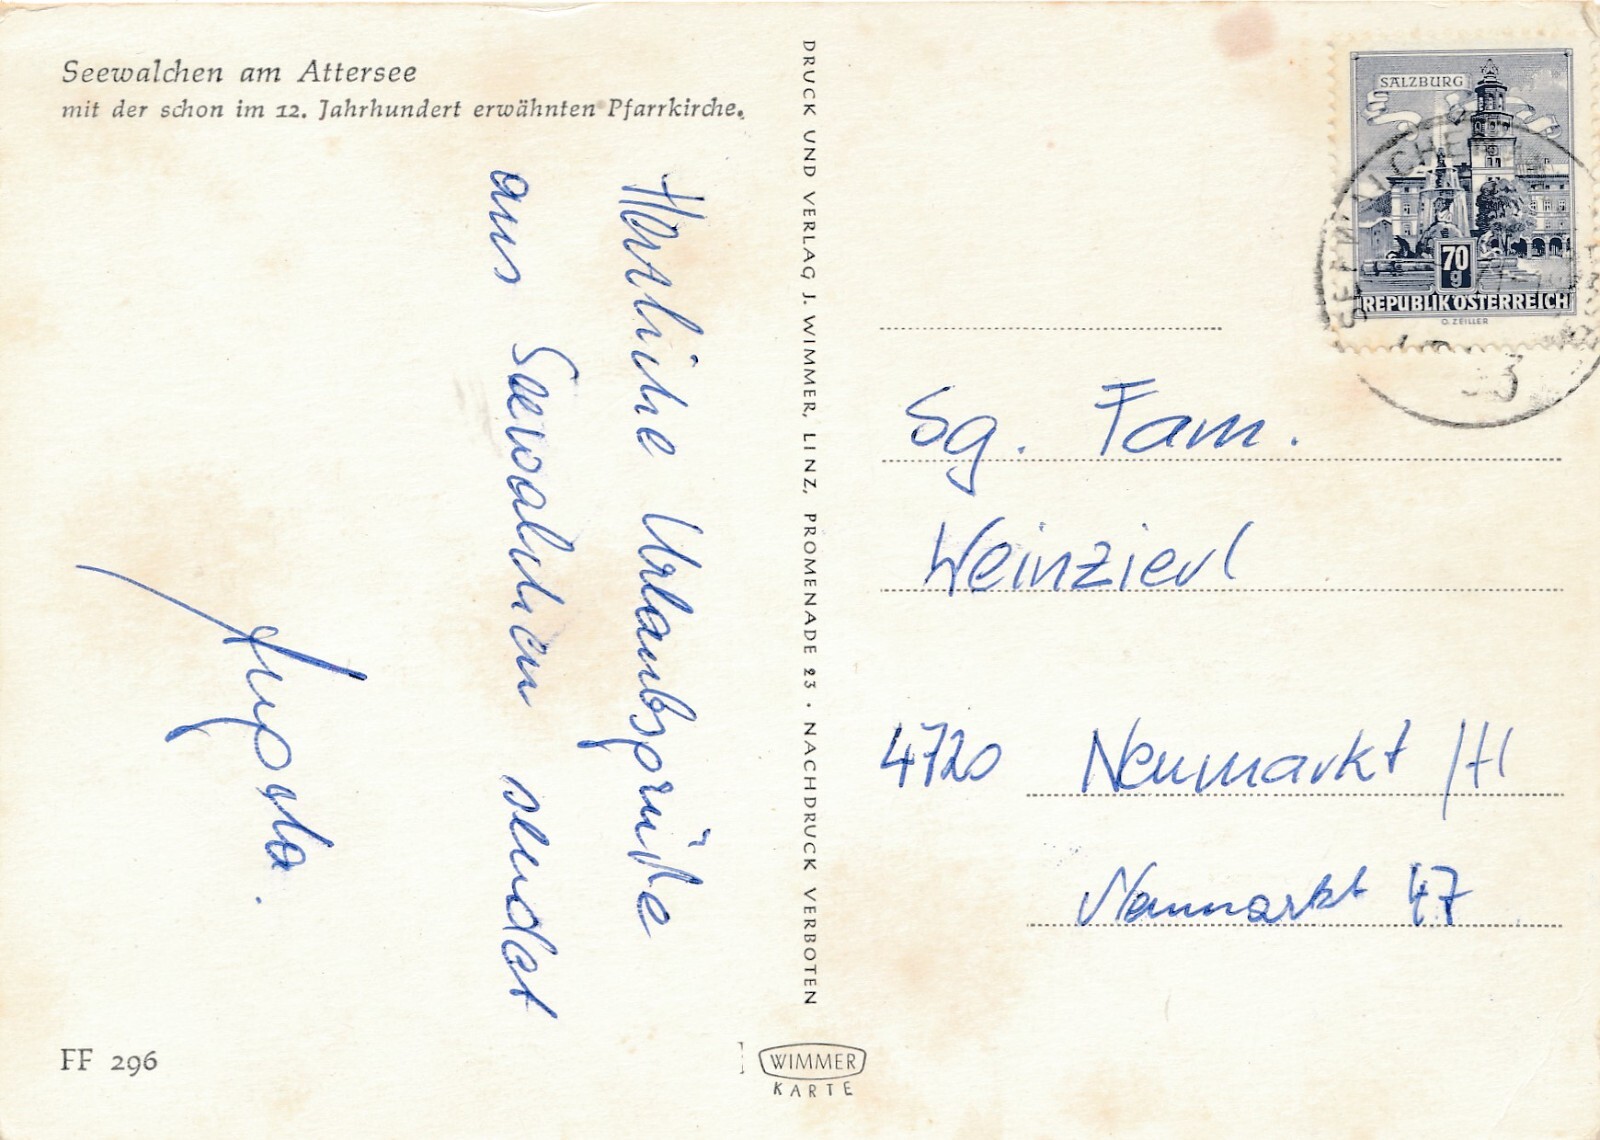 Seewalchen am Attersee
mit der schon im 12. Jahrhundert erwähnten Pfarrkirche.
Herzliche Urlaubsgrüße
aus Seewalchen sendet
DRUCK UND VERLAG J. WIMMER, LINZ, PROMENADE 23 · NACHDRUCK VERBOTEN
SALZBURG
70
g
REPUBLIK ÖSTERREICH
O. ZEILLER
SEEWALCHEN
Sg. Fam.
Weinzierl
4720 Neumarkt /H
Neumarkt 47
FF 296
WIMMER
KARTE